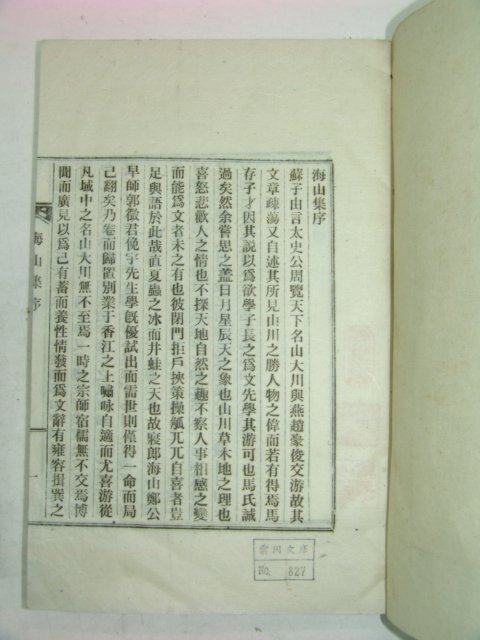 海山集序
蘇子由言太史公周覽天下名山大川與燕趙豪俊交游故其
文章疎蕩又自述其所見山川之勝人物之偉而若有得焉馬
存子才因其說以爲欲學子長之爲文先學其游可也馬氏誠
過矣然余嘗思之蓋日月星辰天之象也山川草木地之理也
喜怒悲歡人之情也不探天地自然之趣不察人事相感之變
而能爲文者未之有也彼閉門拒戶挾策操觚兀兀自喜者豈
足與語於此哉直夏蟲之冰而井蛙之天也故寢郞海山鄭公
早師郭徵君俛宇先生學旣優試出而需世則僅得一命而局
己翻矣乃卷而歸置別業于香江之上嘯咏自適而尤喜游從
凡域中之名山大川無不至焉一時之宗師宿儒無不交焉博
聞而廣見以爲己有蓄而養性情發而爲文辭有雍容揖巽之
海山集序
一
文庫
No. 827